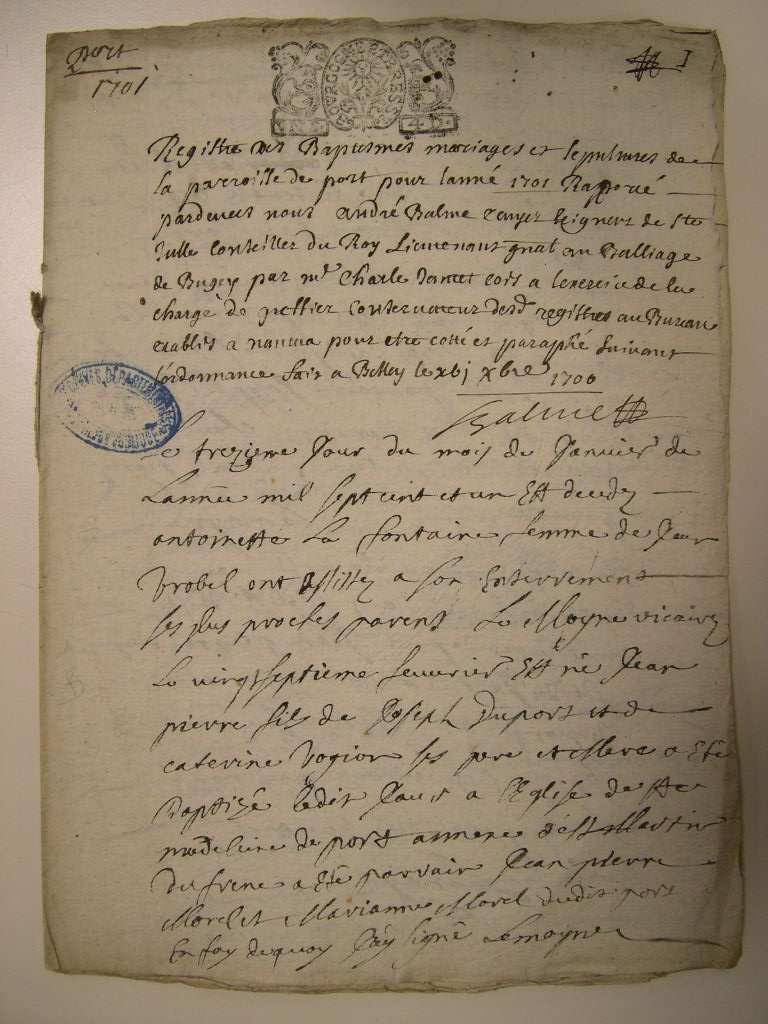 port
1701
I
BOURGOGNE ET BRESSE
Registre des Baptesmes mariages et sepultures de
la parroisse de port pour lanné 1701 Rapporté
pardevant nous André Balme escuyer seigneur de Ste
Julle Conseiller du Roy Lieutenant gnal au Balliage
de Bugey par mr Charle commis a lexercice de la
charge de greffier Conservateur desd registres au Bureau
establis a nantua pour etre cotté et paraphé suivant
lordonnance fait a Belley le xvj xbre 1700
Balme
Le trezieme Jour du mois de Janvier de
Lannée mil sept cent et un Est decedez
antoinette La fontaine femme de Jean
ont assistez a son Enterrement
ses plus proches parent Le Moyne vicaire
Le vingt septieme feuvrier Est né Jean
pierre fils de Joseph Duport et de
caterine ses pere et Mere a Eté
Baptizé Ledit Jour a l'Eglise de Ste
madeleine de port annexe de St Martin
du frene a Eté parrain Jean pierre
Morel et Marianne Morel dudit port
En foy de quoy J'ay signé Lemoyne